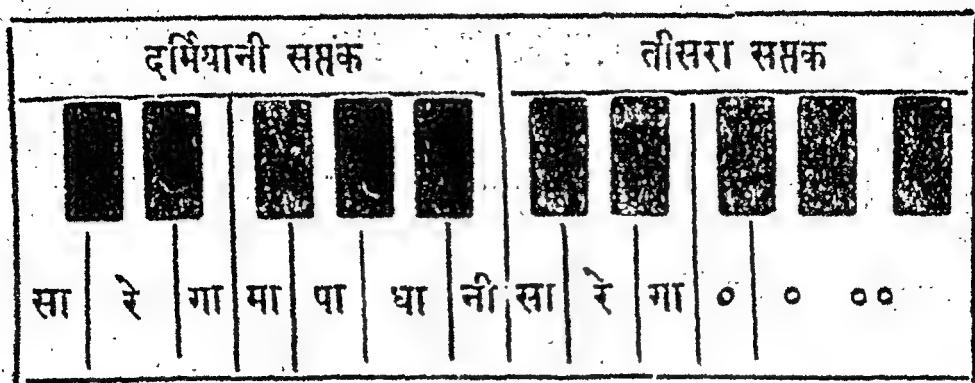 दर्मियानी सप्तक तीसरा सप्तक
सा रे गा मा पा धा नी सा रे गा ० ० ००